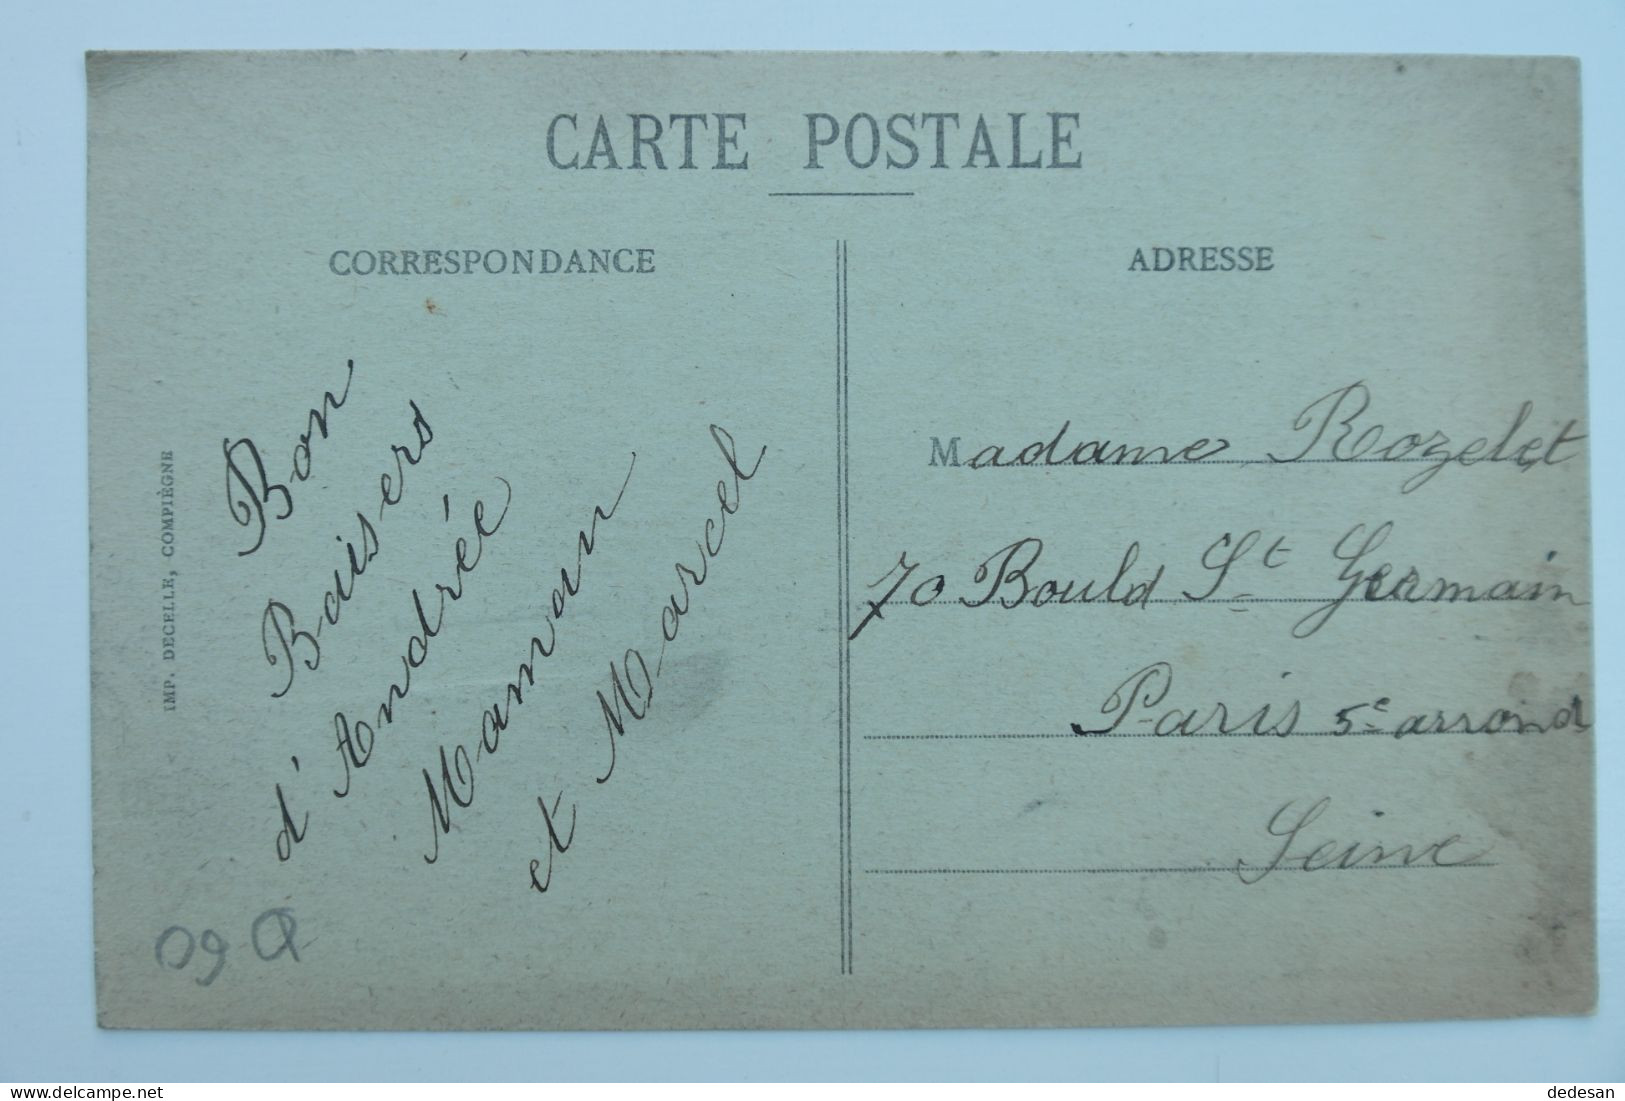 CARTE POSTALE
CORRESPONDANCE
ADRESSE
Bon
Baisers
d'Andrée
Maman
et Marcel
Madame Rozelet
70 Bould St Germain
Paris 5e arrond
Seine
IMP. DECELLE, COMPIÈGNE
delcampe.net
dedesan